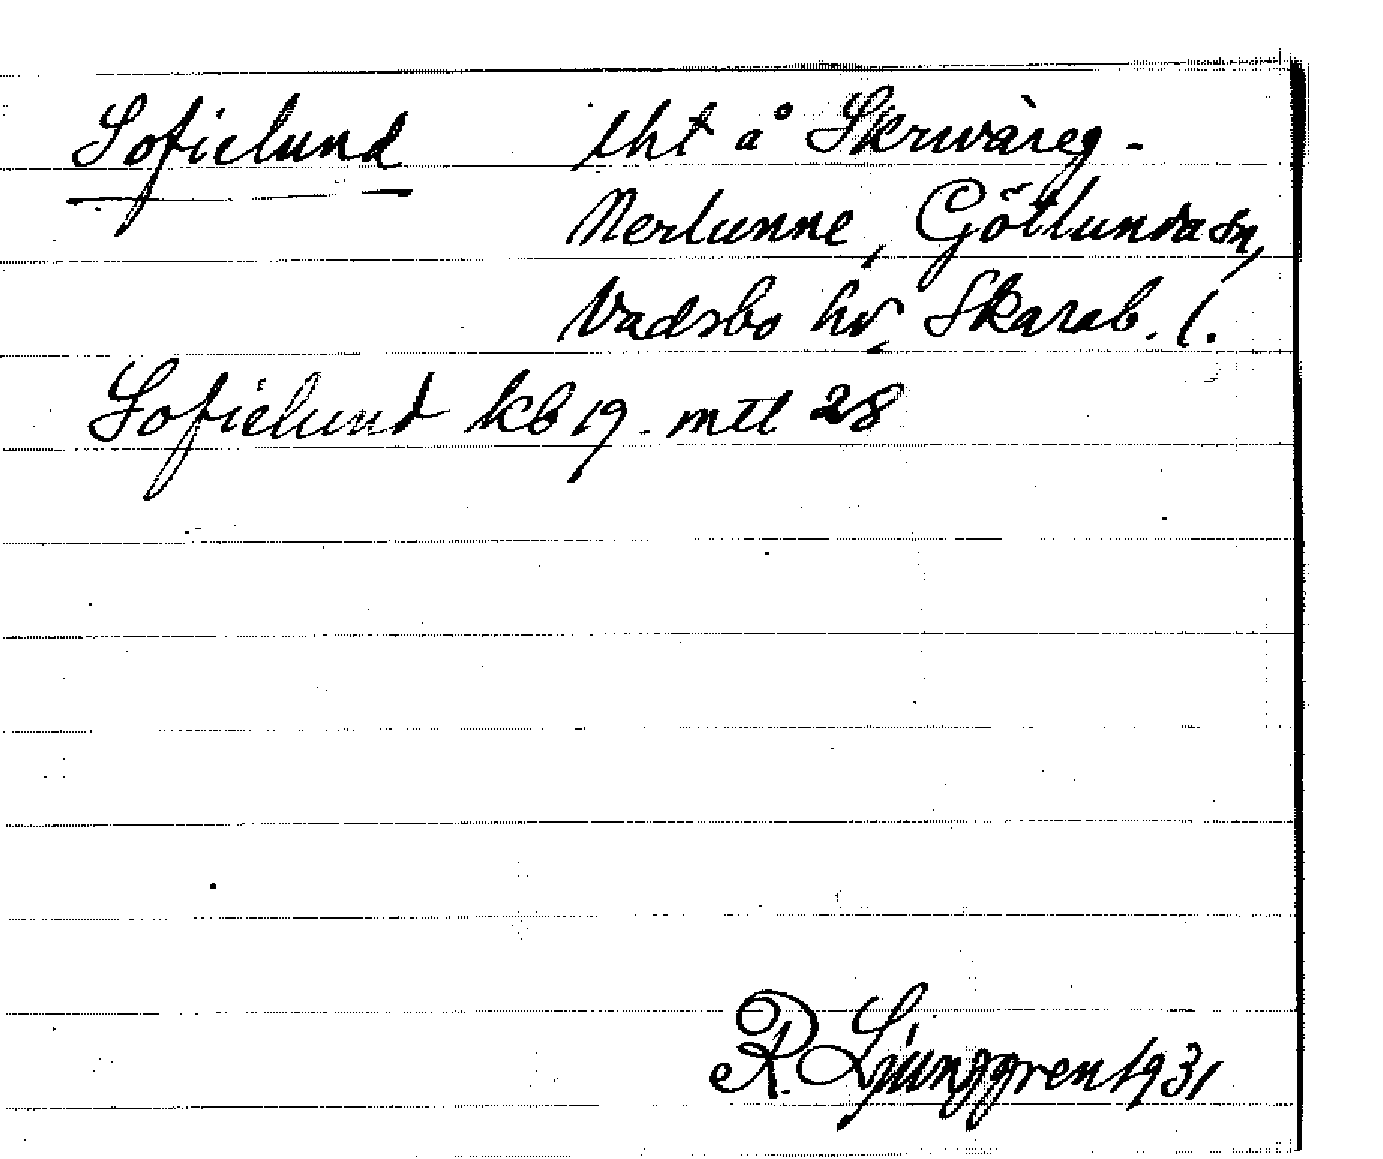 Sofielund tht å Skrwàreg-
Nerlunne, Götlunda sn,
Vadsbo hd, Skarab. l.
Sofielund kb 19. mtl 28
R. Ljunggren 1931